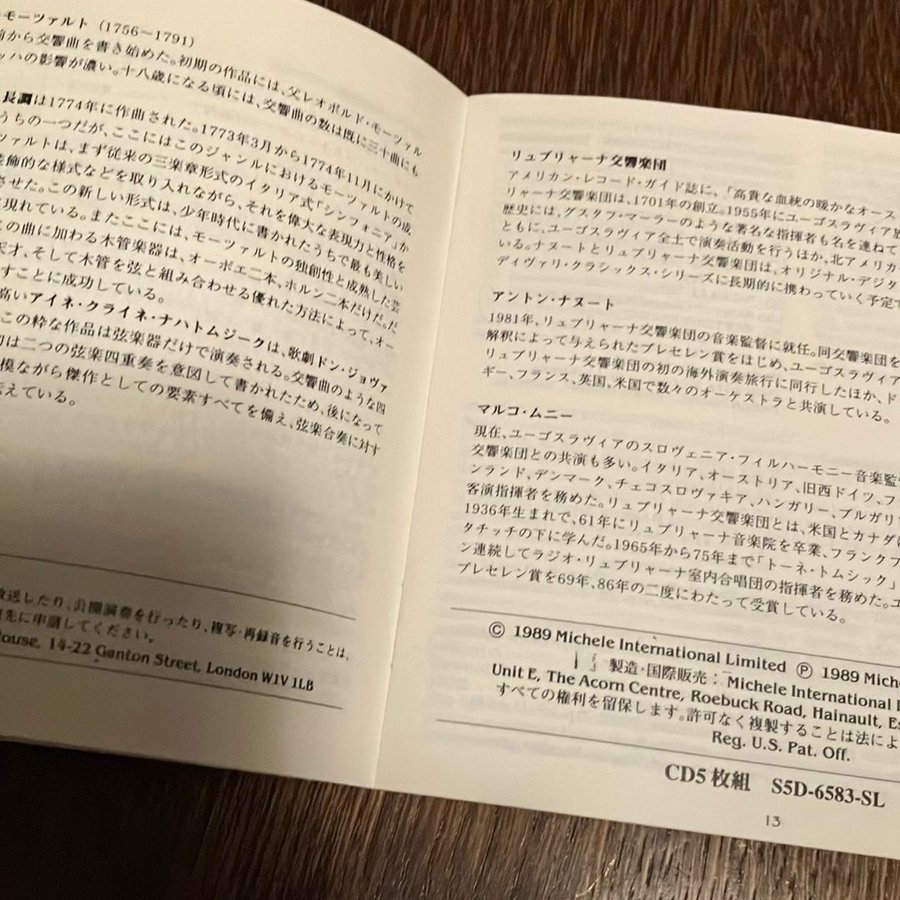 モーツァルト（1756〜1791）
から交響曲を書き始めた。初期の作品には、父レオポルド・モーツァル
ッハの影響が濃い。十八歳になる頃には、交響曲の数は既に三十曲にも
長調は1774年に作曲された。1773年3月から1774年11月にかけて
うちの一つだが、ここにはこのジャンルにおけるモーツァルトの成
ツァルトは、まず従来の三楽章形式のイタリア式「シンフォニア」か
飾的な様式などを取り入れながら、それを偉大な表現力と性格を
させた。この新しい形式は、少年時代に書かれたうちで最も美しい
現れている。またここには、モーツァルトの独創性と成熟した芸
の曲に加わる木管楽器は、オーボエ二本、ホルン二本だけだ。だ
天才、そして木管を弦と組み合わせる優れた方法によって、オー
すことに成功している。
高いアイネ・クライネ・ナハトムジークは、歌劇ドン・ジョヴァ
この粋な作品は弦楽器だけで演奏される。交響曲のような四
初は二つの弦楽四重奏を意図して書かれたため、後になって
模ながら傑作としての要素すべてを備え、弦楽合奏に対す
えている。
放送したり、公開演奏を行ったり、複写・再録音を行うことは、
先に申請してください。
ouse, 14-22 Ganton Street, London W1V 1LB
リュブリャーナ交響楽団
アメリカン・レコード・ガイド誌に、「高貴な血統の暖かなオース
リャーナ交響楽団は、1701年の創立。1955年にユーゴスラヴィア放
歴史には、グスタフ・マーラーのような著名な指揮者も名を連ねて
ともに、ユーゴスラヴィア全土で演奏活動を行うほか、北アメリカ
いる。ナヌートとリュブリャーナ交響楽団は、オリジナル・デジタ
ディヴァリ・クラシックス・シリーズに長期的に携わっていく予定で
アントン・ナヌート
1981年、リュブリャーナ交響楽団の音楽監督に就任。同交響楽団を
解釈によって与えられたプレセレン賞をはじめ、ユーゴスラヴィア
リュブリャーナ交響楽団の初の海外演奏旅行に同行したほか、ド
ギー、フランス、英国、米国で数々のオーケストラと共演している。
マルコ・ムニー
現在、ユーゴスラヴィアのスロヴェニア・フィルハーモニー音楽監
交響楽団との共演も多い。イタリア、オーストリア、旧西ドイツ、フ
ンランド、デンマーク、チェコスロヴァキア、ハンガリー、ブルガリ
客演指揮者を務めた。リュブリャーナ交響楽団とは、米国とカナダに
1936年生まれで、61年にリュブリャーナ音楽院を卒業、フランクフ
タチッチの下に学んだ。1965年から75年まで「トーネ・トムシック」
ン連続してラジオ・リュブリャーナ室内合唱団の指揮者を務めた。ユ
プレセレン賞を69年、86年の二度にわたって受賞している。
© 1989 Michele International Limited ℗ 1989 Mich
製造・国際販売： Michele International L
Unit E, The Acorn Centre, Roebuck Road, Hainault, Es
すべての権利を留保します。許可なく複製することは法によ
Reg. U.S. Pat. Off.
CD5枚組 S5D-6583-SL
13